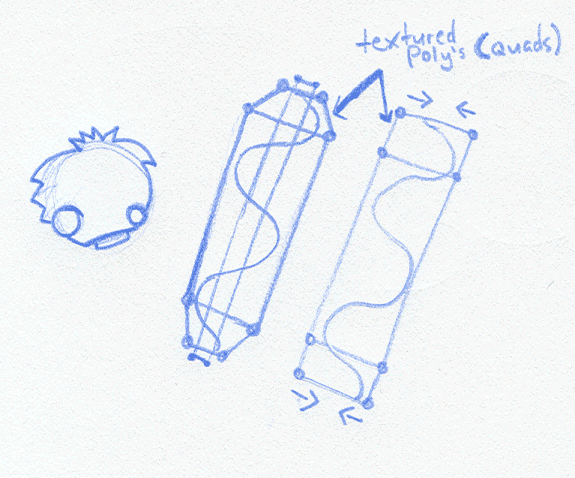 textured
Poly's (Quads)